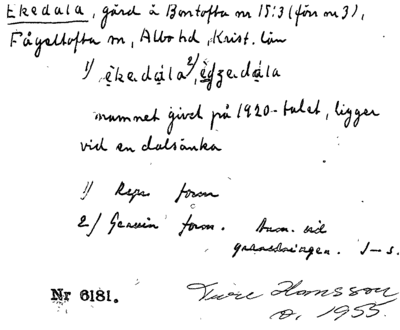 Ekedala, gård å Bontofta nr 15:3 (förr nr 3),
Fågeltofta sn, Albo hd, Krist. län
1) ēkedála 2) ēgzedála
namnet givet på 1920-talet, ligger
vid en dalsänka
1) Repr form
2) Genuin form. Ann. vid
granskningen. J-s.
Nr 6181.
Ture Hansson
1955.